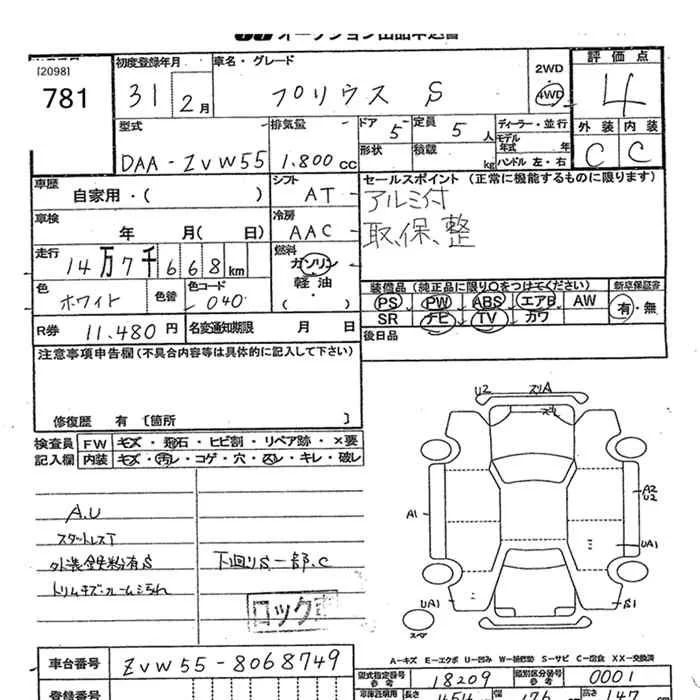 オークション出品申込書
[2098]
781
初度登録年月
31 2月
車名・グレード
プリウス S
2WD
4WD
評価点
4
外装 内装
C C
型式
DAA-ZVW55
排気量
1.800cc
ドア 5
定員 5人
形状
積載 kg
ディーラー・並行
モデル年式 年
ハンドル 左・右
車歴
自家用・( )
シフト
AT
セールスポイント (正常に機能するものに限ります)
アルミ付
取、保、整
車検
年 月( 日)
冷房
AAC
走行
14万7千668km
燃料
ガソリン
軽油
( ・ )
色
ホワイト
色替
色コード
040
装備品 (純正品に限り○をつけてください)
新車保証書
PS PW ABS エアB AW
SR ナビ TV カワ
有・無
R券 11.480円
名変通知期限 月 日
後日品
注意事項申告欄(不具合内容等は具体的に記入して下さい)
修復歴 有 〔箇所 〕
検査員記入欄
FW キズ・飛石・ヒビ割・リペア跡・×要
内装 キズ・汚レ・コゲ・穴・スレ・キレ・破レ
A.U
スタットレスT
外装鉄粉有S
下回りS一部.C
ロック
U2
A1
A2
U2
UA1
UA1
S1
スペア
A-キズ E-エクボ U-凹み S-サビ C-腐食 XX-交換済
車台番号
ZVW55-8068749
型式指定番号 参考
18209
類別区分番号 参考
0001
登録番号
長さ
454cm
幅
176
高さ
147